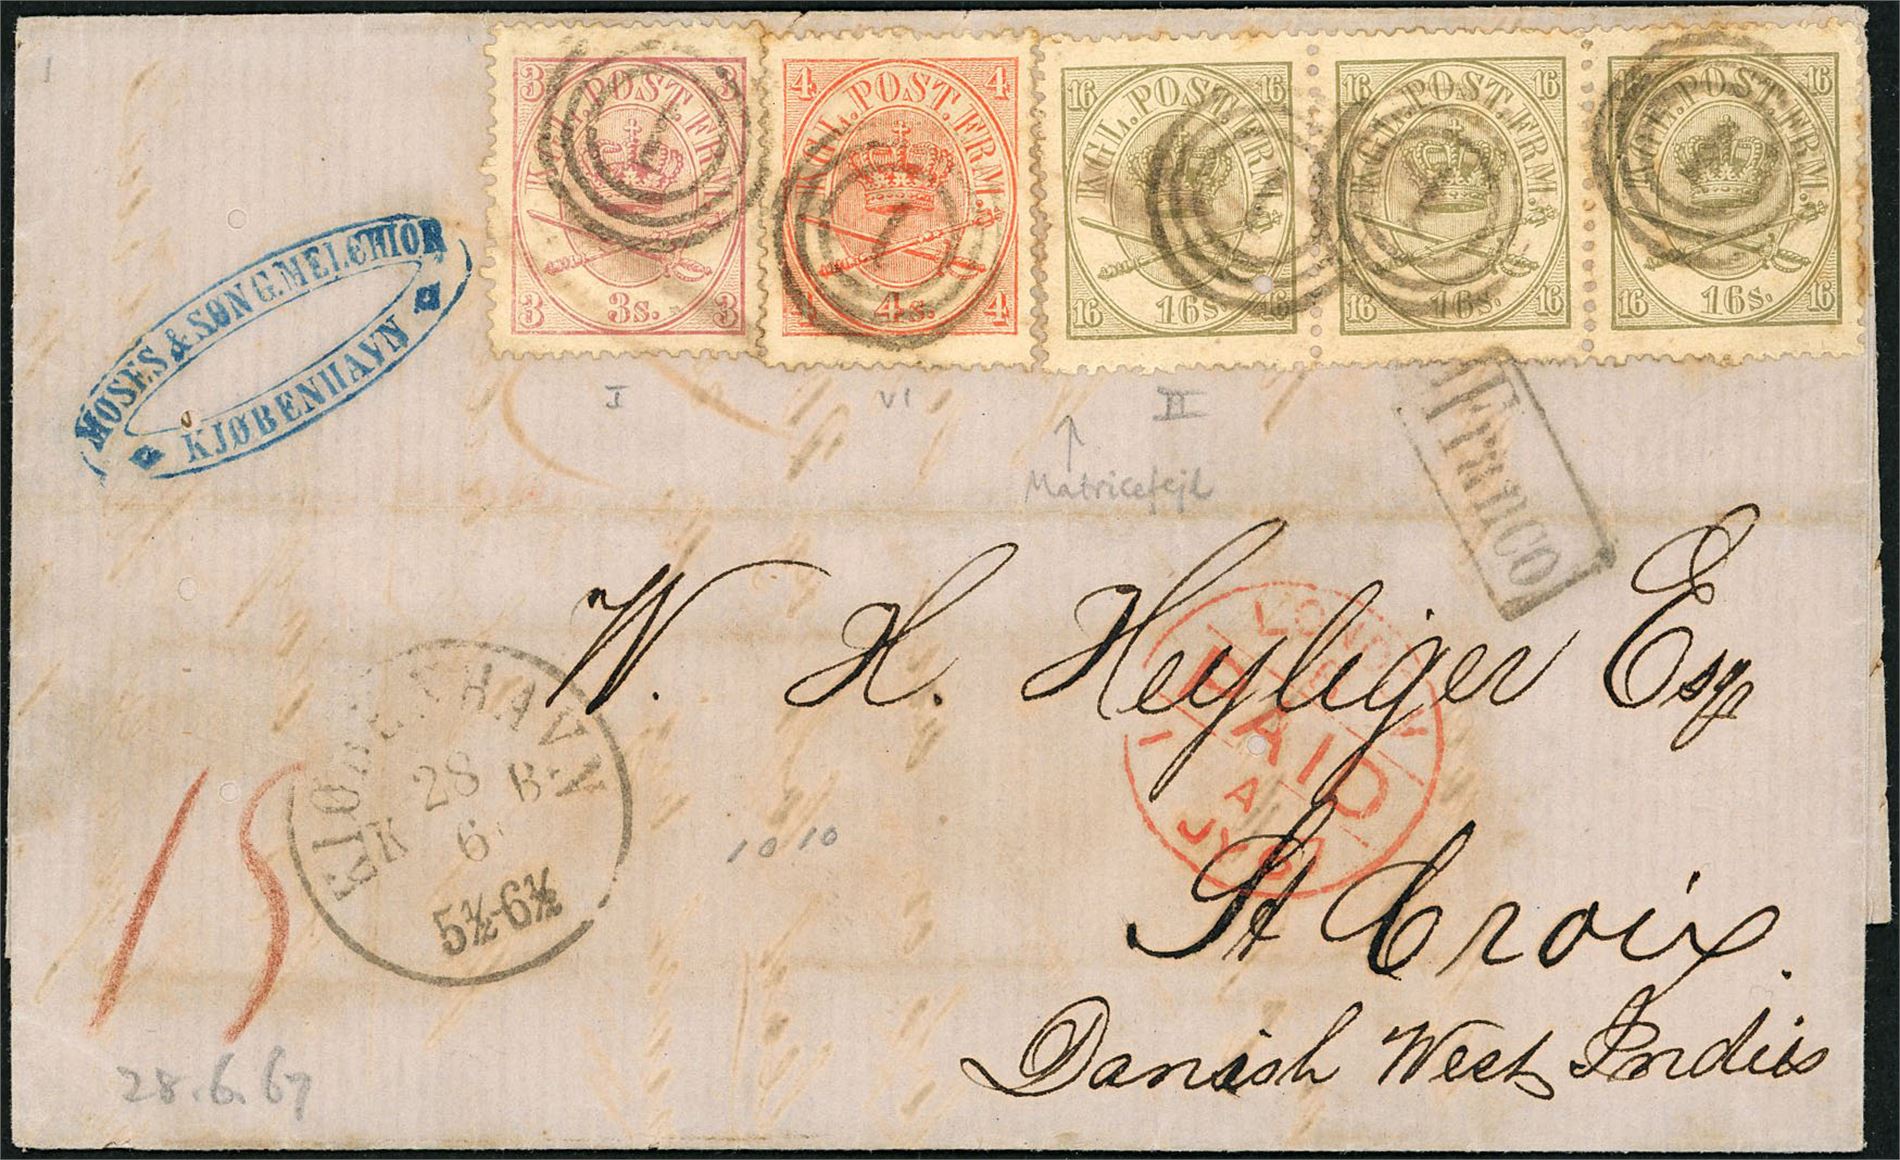 3 3
KGL. POST. FRM.
3 3s. 3
1
4 4
KGL. POST. FRM.
4 4s. 4
1
16 16
KGL. POST. FRM.
16 16s. 16
16 16
KGL. POST. FRM.
16 16s. 16
1
16 16
KGL. POST. FRM.
16 16s. 16
MOSES & SØN G. MELCHIOR,
KJØBENHAVN
I VI II
Matricefejl
Franco
W. H. Heyliger Esqr
LONDON
PAID
A
1 JY 67
KIØBENHAVN
28
K B
6
5½-6½
15
10 10
St Croix.
Danish West Indies
28.6.67